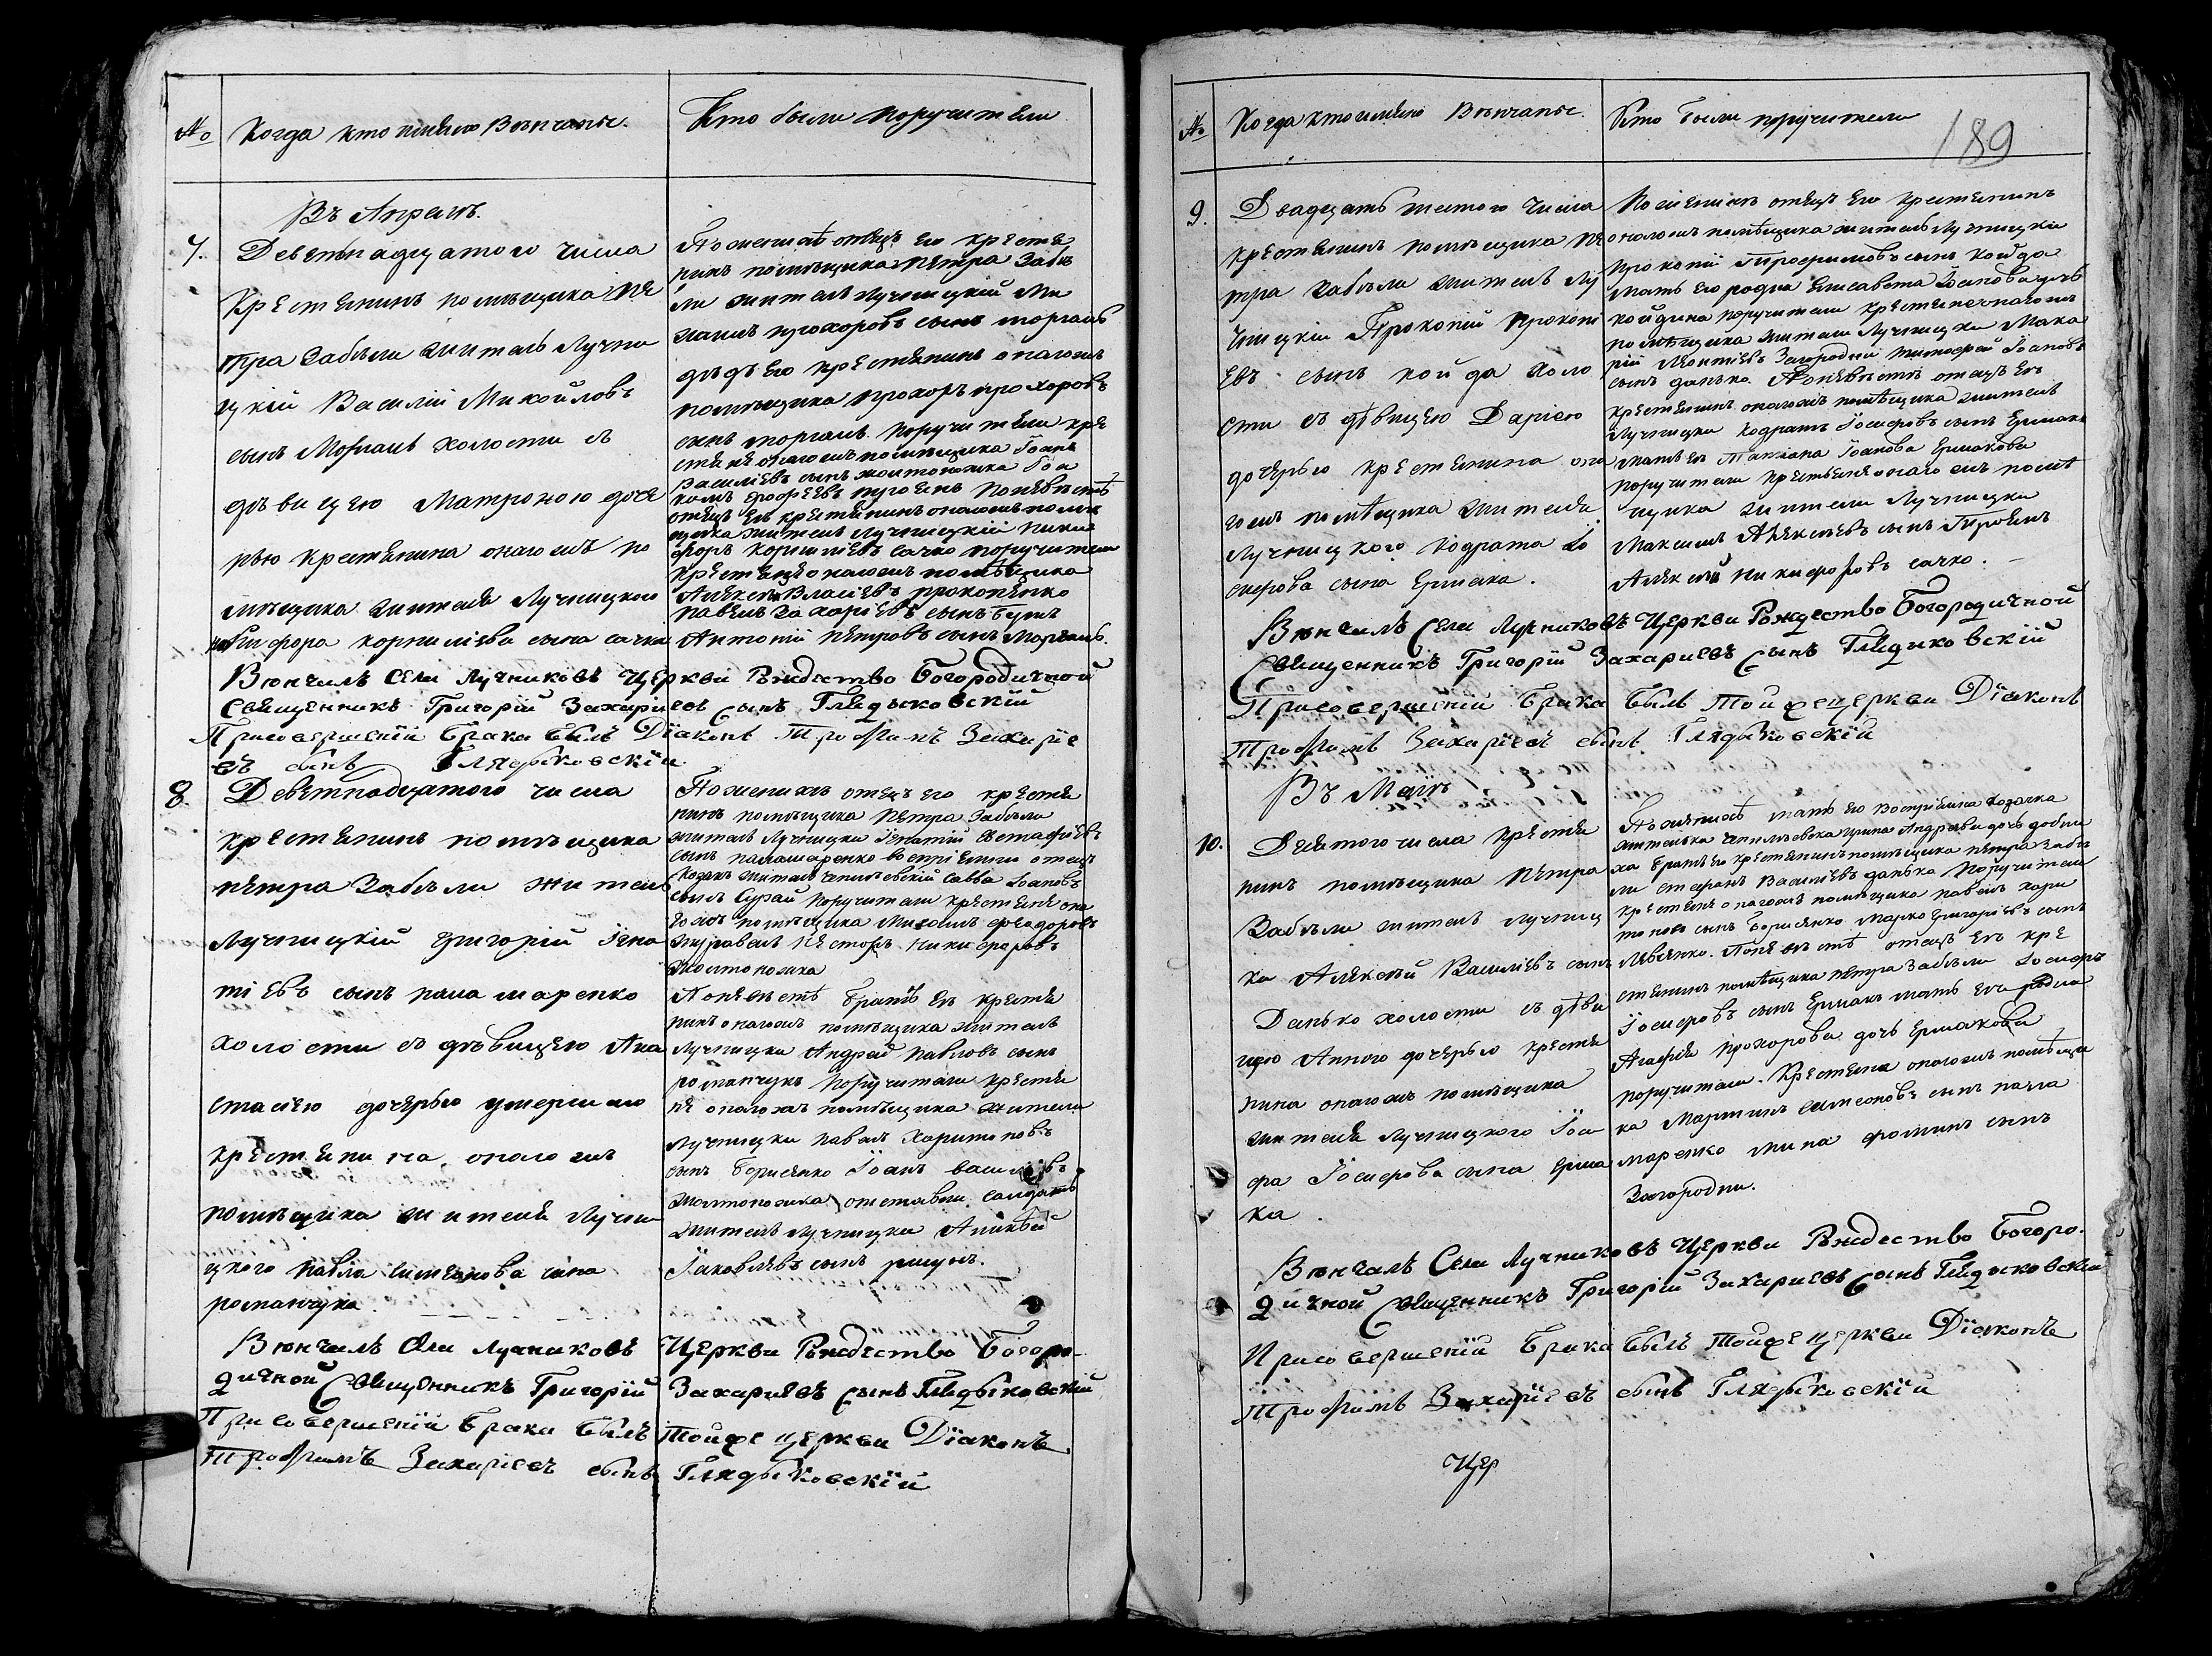 № Когда кто именно Венчаны.
Кто были поручители
Въ Апрелѣ.
7. Деветьнадцатого числа
Крестянинъ помѣщика Пе
тра Забѣли житель Лучни
цкій Василій Михойловъ
сынъ Моргаль холости съ
дѣвицею Матроною доче
рью крестянина оногожъ по
мѣщика жителя Лучницкого
Никифора Корнилиева сына сачка
По женихѣ отецъ его крестя
нинъ помѣщика Петра Забѣ
ли житель лучницкій Ми
хаилъ прохоровъ сынъ моргаль
дѣдъ его крестянинъ оногожъ
помѣщика прохоръ прохоровъ
сынъ моргаль поручители кре
стяне оногожъ помѣщика Іоанъ
Василіевъ сынъ жолтоножка
отецъ ея крестянинъ оногожъ помѣ
щика житель Лучницкій Ники
форъ Корниліевъ сачко поручители
крестяне оногожъ помѣщика
Алексѣй Власіевъ прокопенко
павелъ Захаріевъ сынъ
Антоній петровъ сынъ Моргаль.
Вѣнчалъ Села Лучниковъ Церкви Рождество Богородичной
Священникъ Григорій Захариевъ Сынъ Глядыковскій
Присовершеній Брака былъ Діаконъ Трофимъ Захаріе
въ сынъ Глядыковскій
8. Деветнадцатого числа
крестянинъ помѣщика
петра Забѣли житель
Лучницкій Григорій Игна
тіевъ сынъ паламаренко
холости съ дѣвицею Ана
стасіею дочерью умершаго
крестянина оногожъ
помѣщика жителя Лучни
цкого павла симеонова сина
романчука
По женихѣ отецъ его крестя
нинъ помѣщика Петра Забѣли
житель Лучницки Игнатій Евстафіевъ
сынъ паламаренко воспріемни отецъ
Козакъ житель Савва Іоановъ
сынъ Сурай поручители крестяне оно
гожъ помѣщика Михаилъ феодоровъ
журавель Несторъ Никифоровъ
жолтоножка
По невѣстѣ братъ ея крестя
нинъ оногожъ помѣщика житель
Лучницки Андрей павловъ сынъ
романчукъ поручители крестя
не оногожъ помѣщика жители
Лучницки павелъ Харитоновъ
сынъ Борисенко Іоанъ василіевъ
жолтоножка отставни салдатъ
житель Лучницки
Іаковлевъ сынъ
Вѣнчалъ Села Лучниковъ Церкви Рождество Богоро-
дичной Священникъ Григорій Захариевъ Сынъ Глядыковскій
При совершеній Брака былъ Тойже церкви Діаконъ
Трофимъ Захаріевъ сынъ Глядыковскій
№ Когда кто именно Венчаны.
Кто были поручители
189
9. Двадцать шестого числа
крестянинъ помѣщика Пе
тра Забѣли житель Лу
чницкіи Прокопій прокопі
евъ сынъ койда холо
сти съ дѣвицею Даріею
дочерью крестянина оно
гожъ помѣщика жителя
Лучницкого Кодрата Іо
сифова сына Ермака.
По женихѣ отецъ его крестянинъ
оногожъ помѣщика житель Лучницкіи
прокопій Трофимовъ сынъ койда
мать его родна Елисавета Іоанова дочь
койдина поручители крестяне оногожъ
помѣщика жители Лучницки Мака
рій Леонтіевъ Загородній Тимофей Іоановъ
сынъ данько. По невѣстѣ отецъ ея
крестянинъ оногожъ помѣщика житель
Лучницки Кодратъ Іосифовъ сынъ Ермакъ
мать ея Татіана Іоанова Ермакова
поручители крестяне оногожъ помѣ
щика жители Лучницки
Максимъ Алексѣевъ сынъ
Алексѣй никифоровъ сачко.
Вѣнчалъ Села Лучниковъ Церкви Рождество Богородичной
Священникъ Григорій Захариевъ Сынъ Глядиковскій
Присовершеній Брака былъ Тойжецеркви Діаконъ
Трофимъ Захаріевъ сынъ Глядыковскій
Въ Маіи
10. Девятого числа крестя
нинъ помѣщика петра
Забѣли житель лучниц
ки Алексѣй Василіевъ сынъ
Данько холости съ дѣви
цею Анною дочерью крестя
нина оногожъ помѣщика
жителя Лучницкого Іоси
фа Іосифова сына Ерма
ка.
По женихѣ мать его воспріемна козачка
ха братъ его крестянинъ помѣщика петра Забѣ
ли стефанъ Василіевъ данько поручители
крестяне оногожъ помѣщика павелъ хари
тоновъ сынъ Борисенко Марко Григоріевъ сынъ
По невѣстѣ отецъ ея кре
стянинъ помѣщика петра Забѣли Іосифъ
Іосифовъ сынъ Ермакъ мать ея родна
Агафія прохорова дочь ермакова
поручители. Крестяне оногожъ помѣщи
ка Мартинъ симеоновъ сынъ пала
маренко мина фоминъ сынъ
Загородни.
Вѣнчалъ Села Лучниковъ Церкви Рождество Богоро-
дичной Священникъ Григорій Захариевъ Сынъ Глядыковскій
Присовершеній Брака былъ Тойже церкви Діаконъ
Трофимъ Захаріевъ сынъ Глядыковскій
Цер